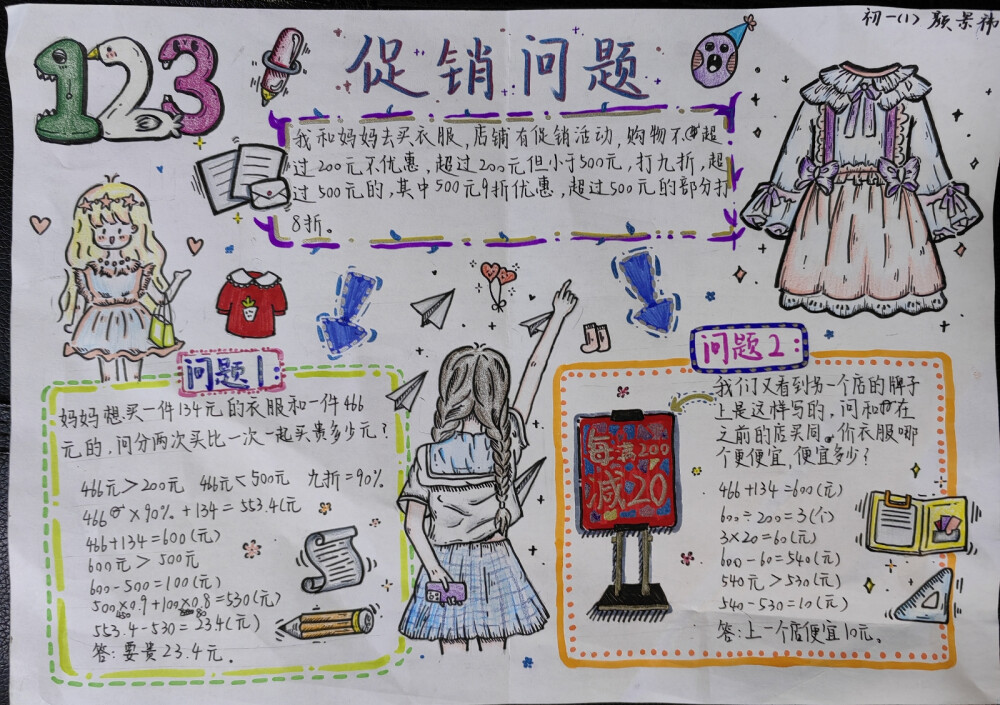 初一(1) 颜景祎
123
促销问题
我和妈妈去买衣服,店铺有促销活动,购物不超
过200元不优惠,超过200元但小于500元,打九折,超
过500元的,其中500元9折优惠,超过500元的部分打
8折。
问题1:
妈妈想买一件134元的衣服和一件466
元的,问分两次买比一次一起买贵多少元?
466元>200元 466元<500元 九折=90%
466×90%+134=553.4(元)
466+134=600(元)
600元>500元
600-500=100(元)
500×0.9+100×0.8=530(元)
450 80
553.4-530=23.4(元)
答:要贵23.4元。
问题2:
我们又看到另一个店的牌子
上是这样写的,问和在
之前的店买同价衣服哪
个更便宜,便宜多少?
每满200
减20
466+134=600(元)
600÷200=3(个)
3×20=60(元)
600-60=540(元)
540元>530(元)
540-530=10(元)
答:上一个店便宜10元。